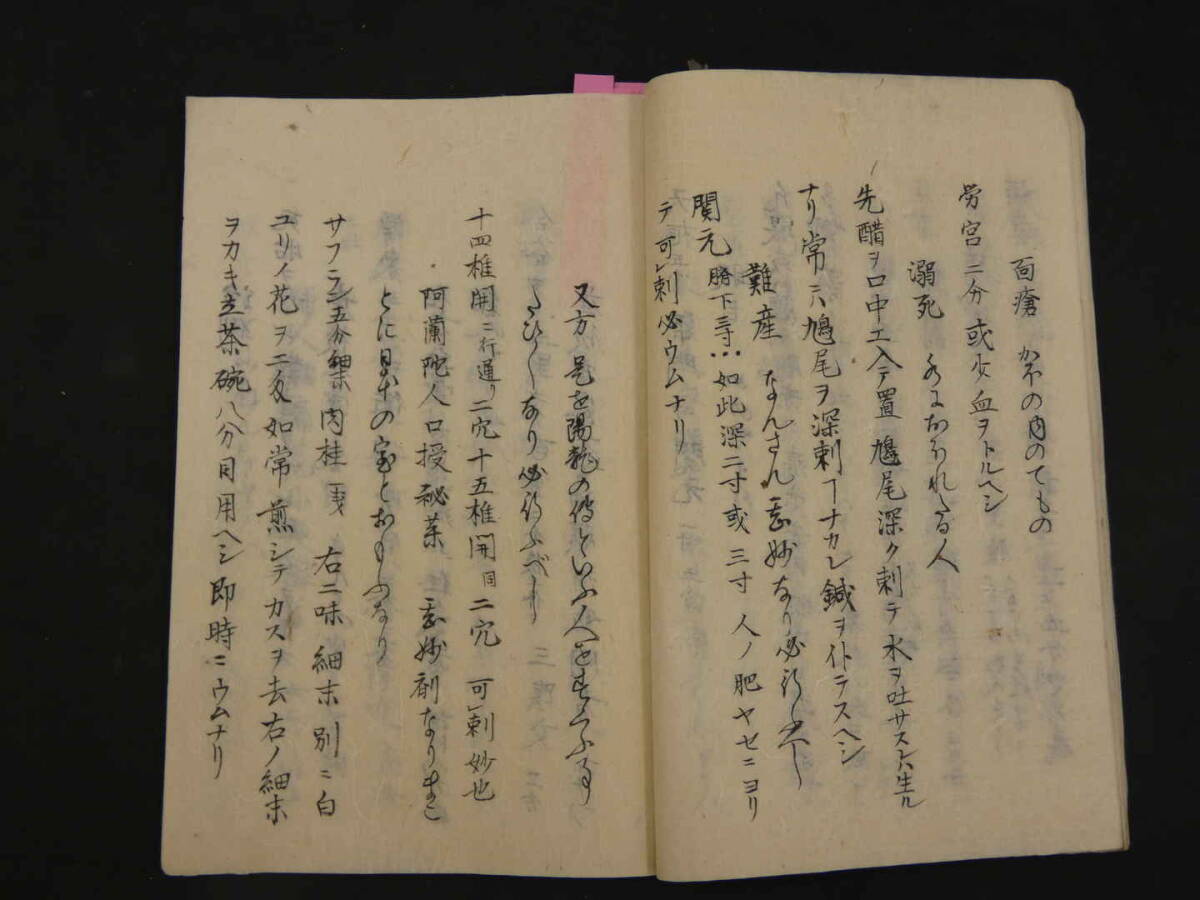 面瘡 かほの内のてもの
労宮二分或火血ヲトルヘシ
溺死 水におほれたる人
先醋ヲ口中エ入テ置鳩尾深ク刺テ水ヲ吐サス大生ル
ナリ常ニハ鳩尾ヲ深刺ーナカレ鍼ヲ仆テスヘシ
難産 なんさん 妙なり必行ふへし
関元 臍下三寸 如此深二寸或三寸人ノ肥ヤセニヨリ
テ可レ刺必ウムナリ
又方 是を陽龍の侍といふ人を
なり必行ふべし
十四椎開ニ行通リ二穴十五椎開同二穴可レ刺妙也
阿蘭陀人口授秘薬 妙剤なりまこ
とに日本の宝とおもふなり
サフラン五分細末肉桂 右二味細末別ニ白
ユリノ花ヲ二匁如常煎シテカスヲ去右ノ細末
ヲカキ立茶碗八分目用ヘシ即時ニウムナリ